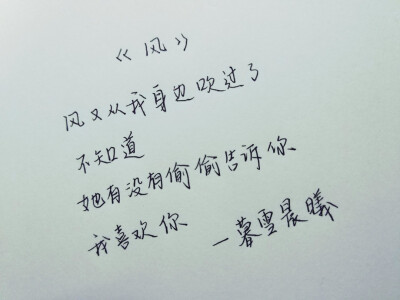 《风》
风又从我身边吹过了
不知道
她有没有偷偷告诉你
我喜欢你
—暮雪晨曦